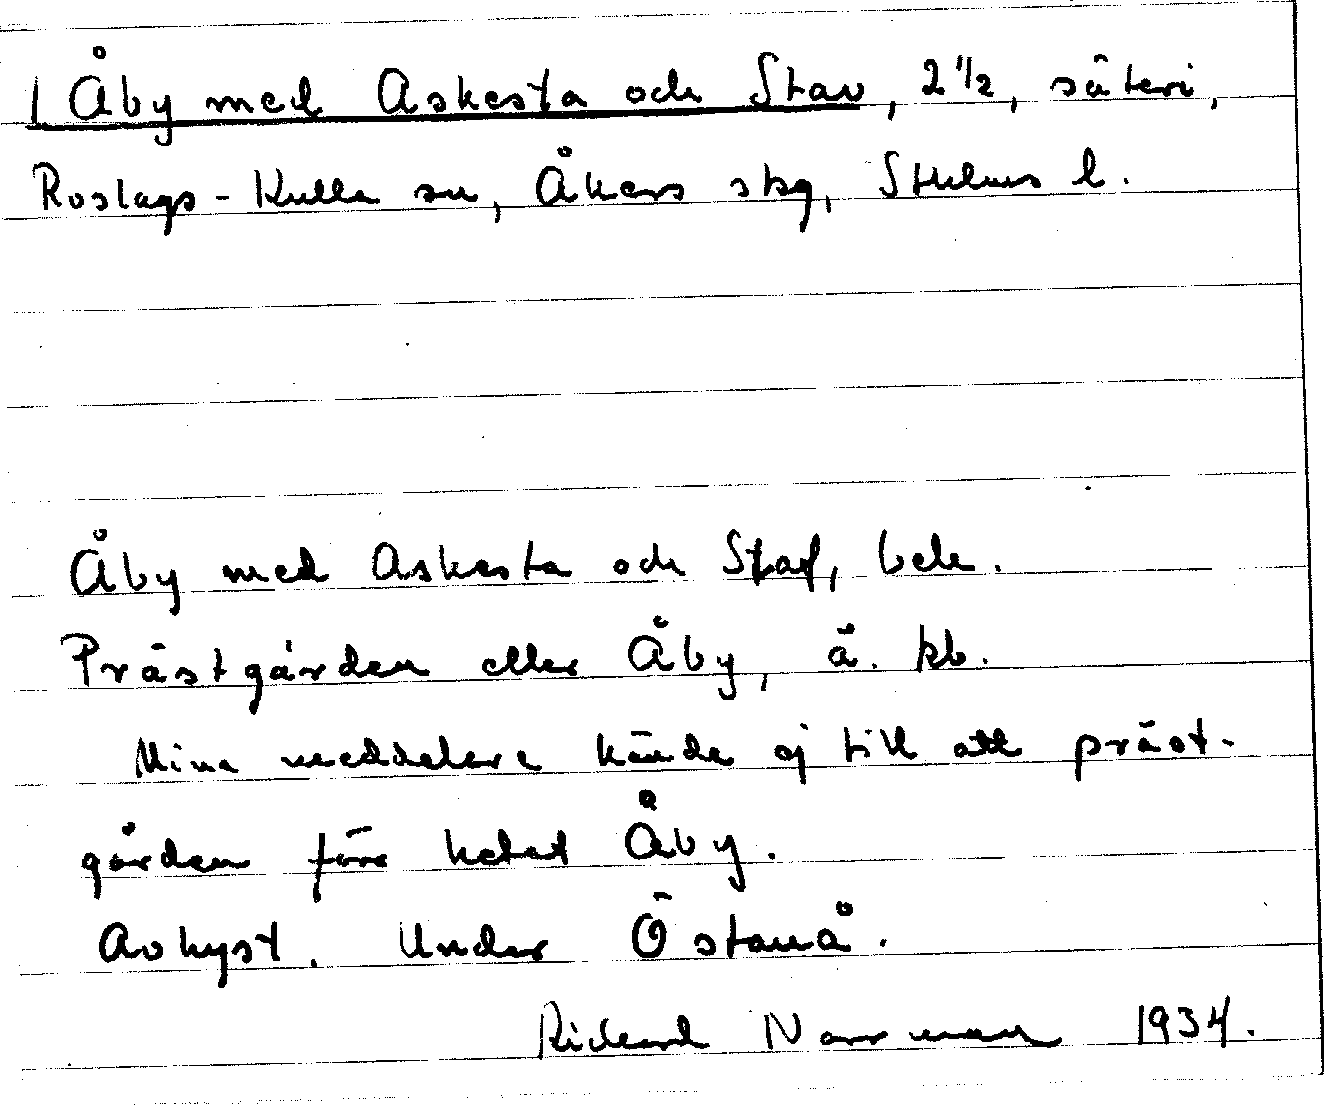 1 Åby med Askesta och Stav, 2 1/2, säteri,
Roslags-Kulla sn, Åkers skg, Sthlms l.
Åby med Askesta och Staf, bek.
Prästgården eller Åby, ä. kb.
Mina meddelare kände ej till att präst-
gården före hetat Åby.
Avhyst. Under Östanå.
Rickard Norrman 1934.